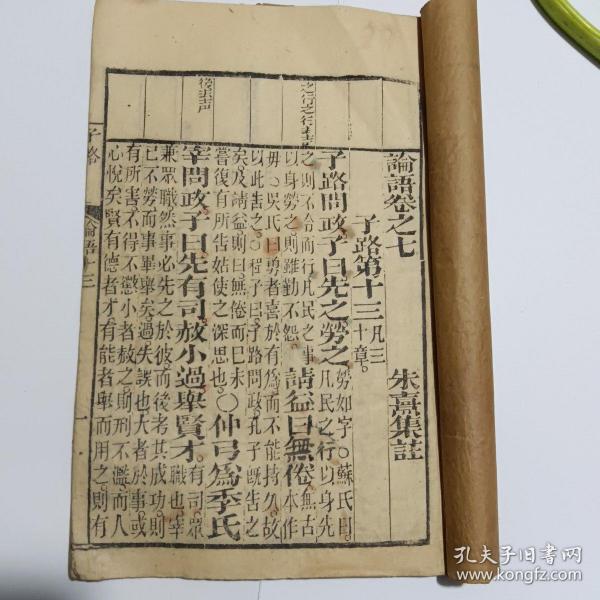 論語卷之七
朱熹集註
子路第十三 凡三十章。
子路問政子曰先之勞之 勞如字○蘇氏曰。凡民之行以身先
之則不令而行凡民之事以身勞之則雖勤不怨。請益曰無倦 無古本作
毋○吳氏曰勇者喜於有爲而不能持久故以此告之○程子曰子路問政孔子旣告之
矣及請益則曰無倦而已未嘗復有所告姑使之深思也。○仲弓爲季氏
宰問政子曰先有司赦小過舉賢才 有司。眾職也宰
兼眾職然事必先之於彼而後考其成功則已不勞而事畢舉矣過失誤也大者於事或
有所害不得不懲小者赦之則刑不濫而人心悅矣賢有德者才有能者舉而用之則有
後去声
子路
論語十三
一
孔夫子旧書网
www.kongfz.com